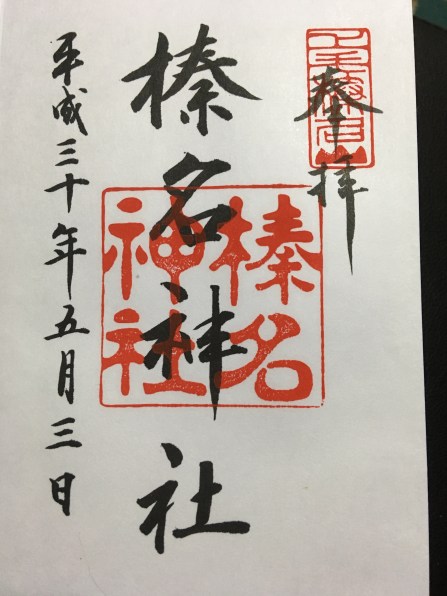 奉拝
榛名神社
榛名
神社
平成三十年五月三日